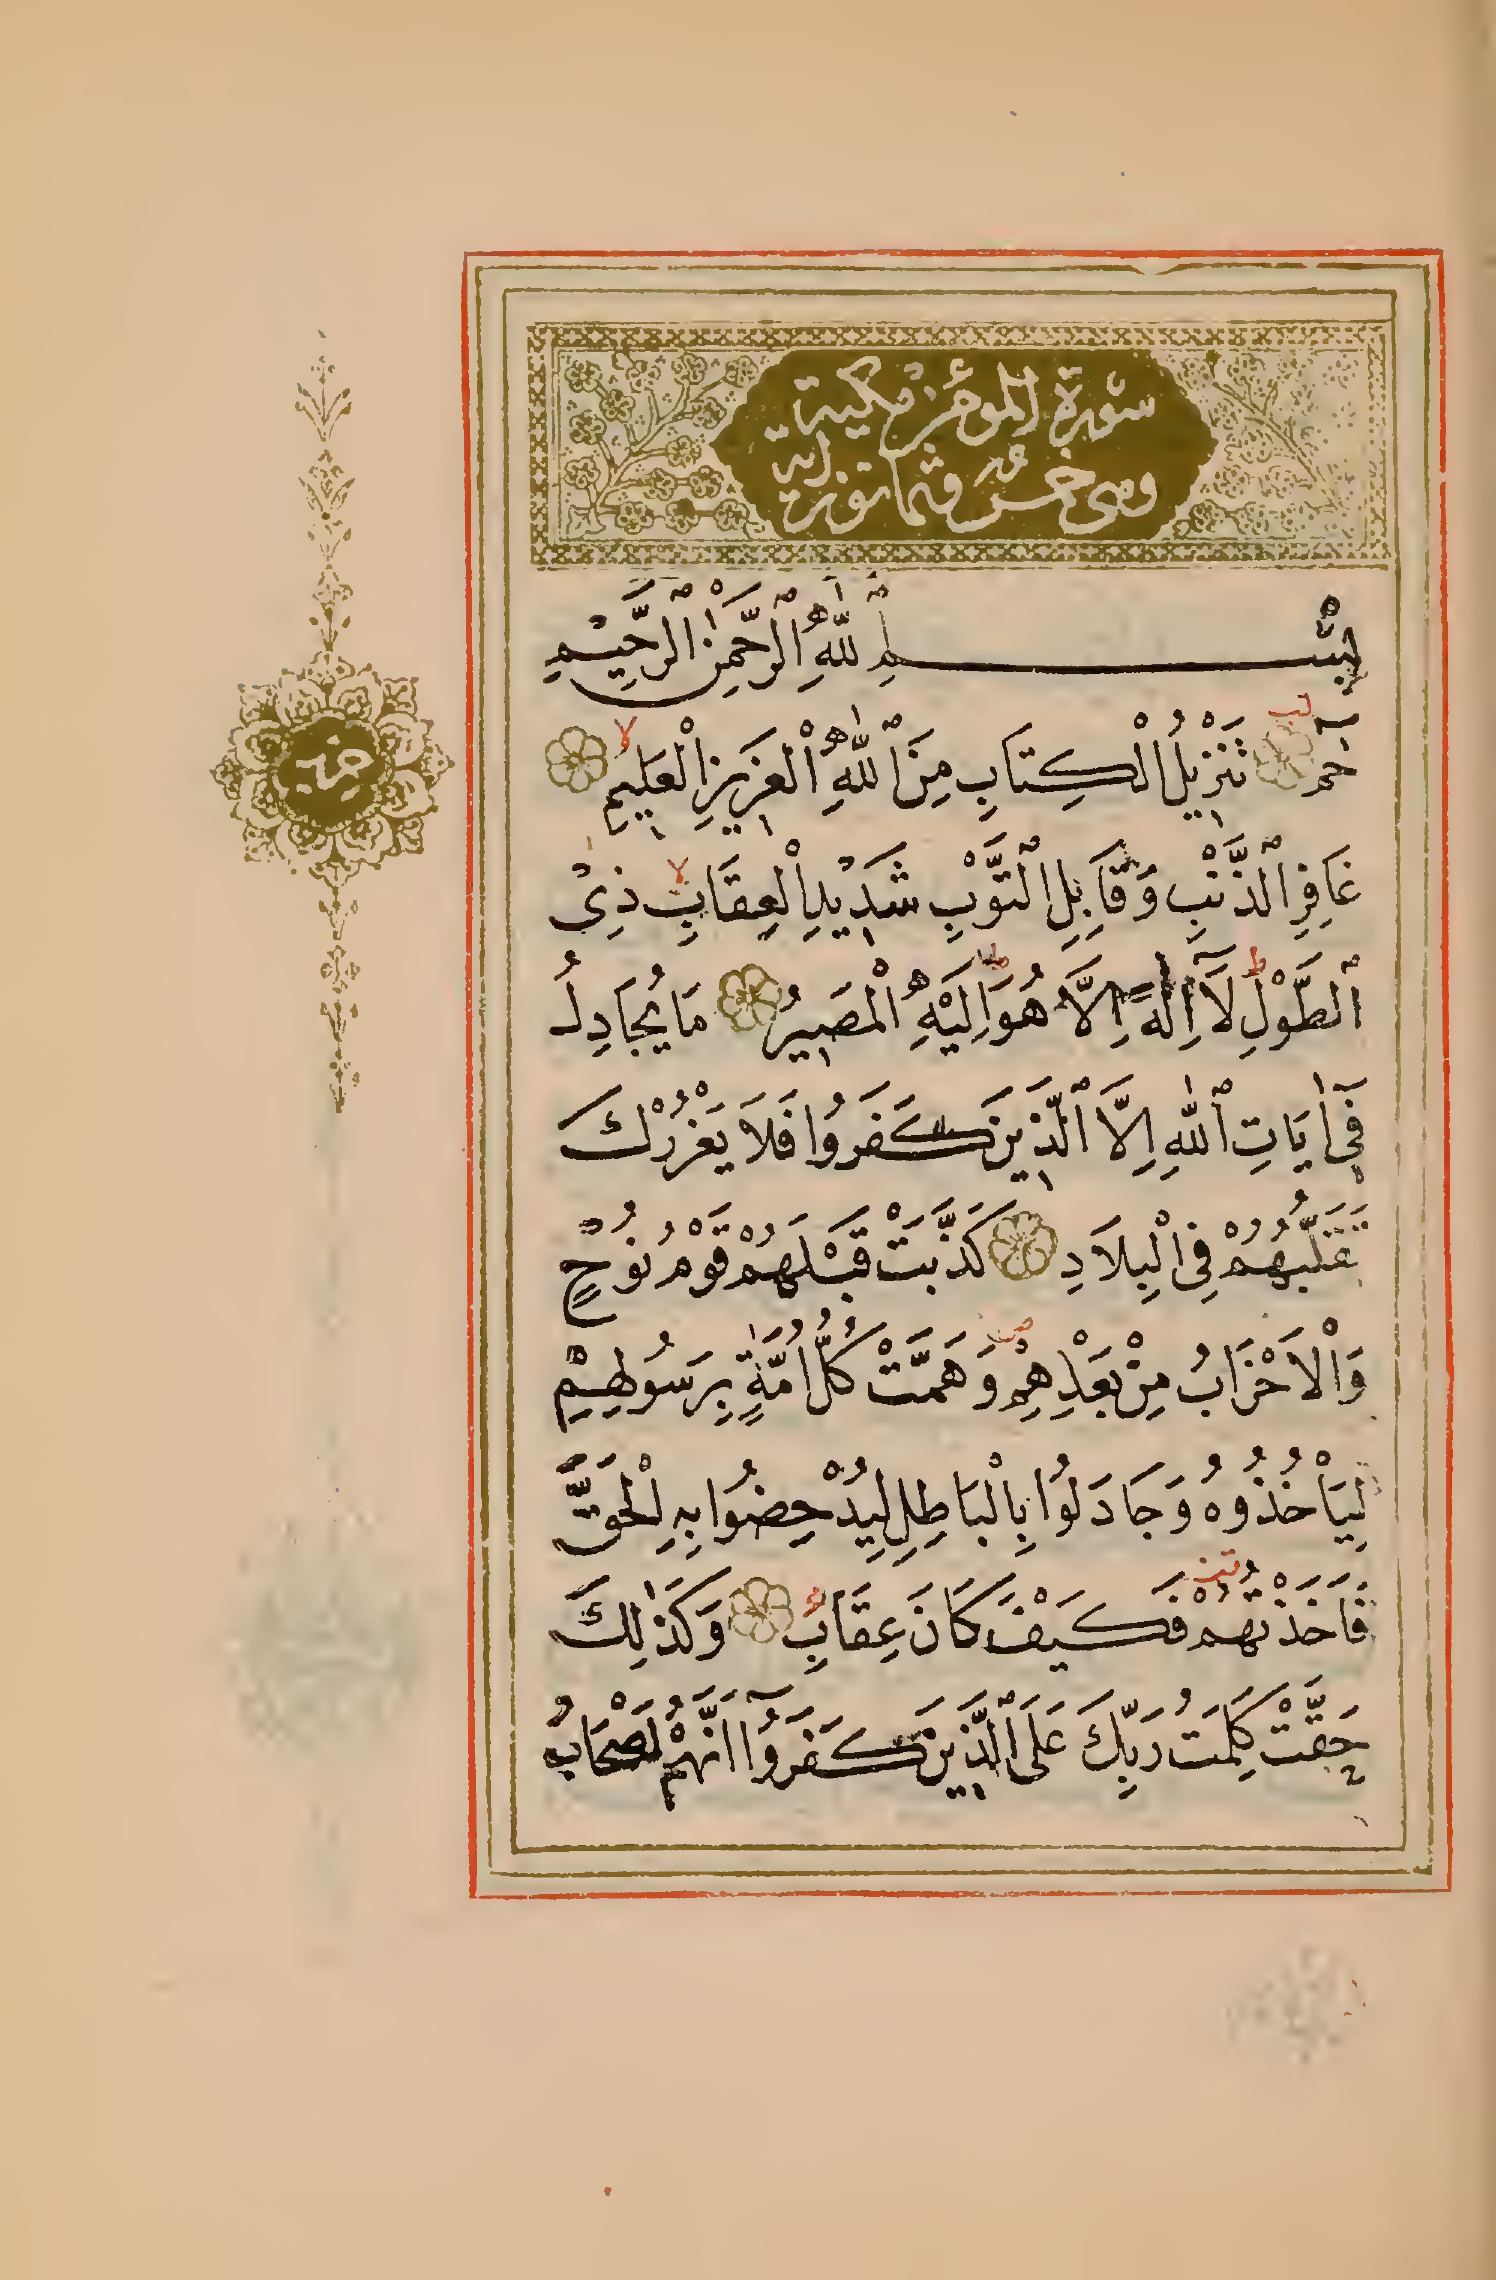 سورة المؤمن مكية
وهي خمس وثمانون اية
بِسْمِ اللّٰهِ الرَّحْمٰنِ الرَّحِيْمِ
حٰمٓ تَنْزِيلُ الْكِتَابِ مِنَ اللّٰهِ الْعَزِيزِ الْعَلِيمِ
غَافِرِ الذَّنْبِ وَقَابِلِ التَّوْبِ شَدِيْدِ الْعِقَابِ ذِي
الطَّوْلِ لَآ اِلٰهَ اِلَّا هُوَ اِلَيْهِ الْمَصِيرُ مَا يُجَادِلُ
فِيٓ اٰيَاتِ اللّٰهِ اِلَّا الَّذِينَ كَفَرُوا فَلَا يَغْرُرْكَ
تَقَلُّبُهُمْ فِي الْبِلَادِ كَذَّبَتْ قَبْلَهُمْ قَوْمُ نُوحٍ
وَالْاَحْزَابُ مِنْ بَعْدِهِمْ وَهَمَّتْ كُلُّ اُمَّةٍ بِرَسُولِهِمْ
لِيَاْخُذُوهُ وَجَادَلُوا بِالْبَاطِلِ لِيُدْحِضُوا بِهِ الْحَقَّ
فَاَخَذْتُهُمْ فَكَيْفَ كَانَ عِقَابِ وَكَذٰلِكَ
حَقَّتْ كَلِمَتُ رَبِّكَ عَلَى الَّذِينَ كَفَرُوٓا اَنَّهُمْ اَصْحَابُ